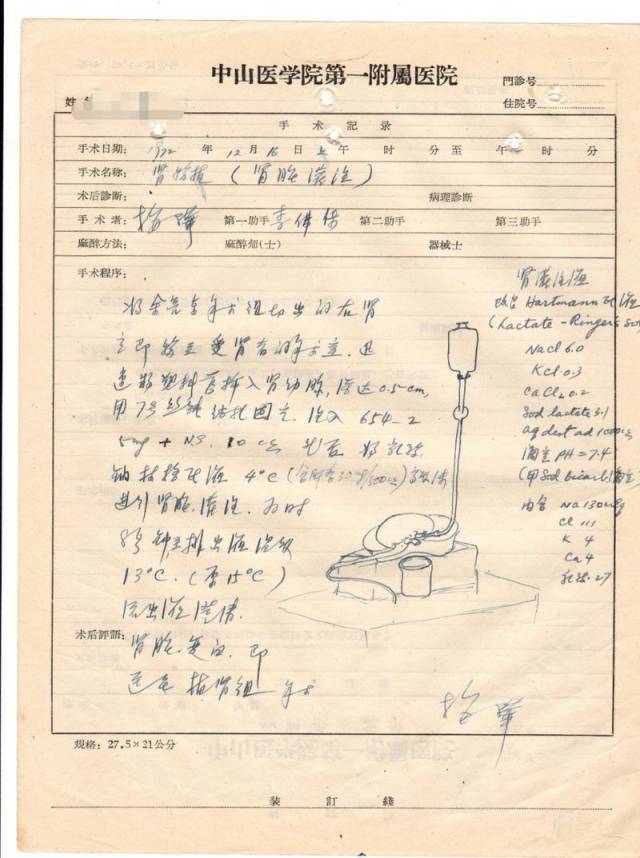 中山医学院第一附屬医院
門診号
住院号
姓名
手术記录
手术日期: 1972 年 12 月 16 日 上午 时 分至 午 时 分
手术名称: 肾移植 (肾脏灌注)
术后診断: 病理診断
手术者: 第一助手 李佛保 第二助手 第三助手
麻醉方法: 麻醉师(士) 器械士
手术程序:
切出的右肾
立即 受肾者的手术室, 迅
速将塑料管插入肾动脉, 深达0.5cm,
用7号丝线结扎固定. 注入 654-2
5mg + N.S. 10cc 先后 将乳酸
钠林格氏液 4°C
进行肾脏灌注. 为时
8分钟至排出液
13°C. (15°C)
流出液澄清.
术后評語: 肾脏变白. 即
送至 植肾组 手术
肾灌注液
Hartmann 氏液
(Lactate-Ringer's sol
NaCl 6.0
KCl 0.3
CaCl₂ 0.2
Sod lactate 3.1
aq dest ad 1000cc
調至 pH=7.4
(用 Sod bicarb 調至)
内含 Na 130 mEq
Cl 111
K 4
Ca 4
乳酸 27
規格: 27.5×21公分
装訂綫